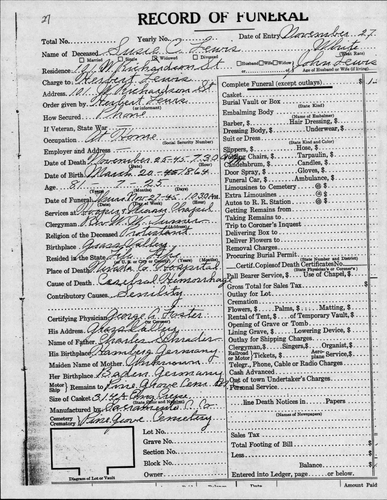 RECORD OF FUNERAL
Total No.
Yearly No.
Date of Entry November 27
Name of Deceased Susie E. Lewis
White
Married Single Widowed Divorced
(What Race)
Residence W. Richardson St
Husband Wife Widow John Lewis
Age of Husband or Wife (If living)
Charge to Herbert Lewis
Address 101 W Richardson St
Order given by Herbert Lewis
How Secured Phone
If Veteran, State War
Occupation At Home
(Social Security Number)
Employer and Address
Date of Death November 25-45 7.30
Date of Birth March 20-1864
Age 81 7 25
Date of Funeral Nov 27-45 10.30 AM
Services at Chapel
Clergyman Rev.
Religion of the Deceased Protestant
Birthplace Grass Valley
Resided in the State Life
Place of Death Nevada Co Hospital
Cause of Death Cerebral Hemorrhage
Contributory Causes Senility
Certifying Physician George C. Foster
His Address Grass Valley
Name of Father Charles Schrader
His Birthplace Hamburg Germany
Maiden Name of Mother Unknown
Her Birthplace Baden Germany
Motor Ship Remains to Pine Grove Cem
Size of Casket
(State Color and Number)
Manufactured by Sacramento C. Co
Cemetery Crematory Pine Grove Cemetery
Lot No.
Grave No.
Section No.
Block No.
Owner
Diagram of Lot or Vault
Complete Funeral (except outlays) $
Casket
Burial Vault or Box
(State Kind)
Embalming Body
(Name of Embalmer)
Barber, Hair Dressing, $
Dressing Body, $ Underwear, $
Suit or Dress
(State Kind and Color)
Slippers, $ Hose, $
Folding Chairs, $ Tarpaulin, $
Candelabrum, $ Candles, $
Door Spray, $ Gloves, $
Funeral Car, $ Ambulance, $
Limousines to Cemetery @ $
Extra Limousines @ $
Autos to R. R. Station @ $
Getting Remains from
Taking Remains to
Trip to Coroner's Inquest
Delivering Box to
Deliver Flowers to
Removal Charges
Procuring Burial Permit
Certif.Copies of Death Certificates No.
(State Physician's or Coroner's)
Pall Bearer Service, $ Use of Chapel, $
Gross Total for Sales Tax
Outlay for Lot
Cremation
Flowers, $ Palms, $ Matting, $
Rental of Tent, $ of Temporary Vault, $
Opening of Grave or Tomb
Lining Grave, $ Lowering Device, $
Outlay for Shipping Charges
Clergyman, $ Singers, $ Organist, $
Railroad Tickets, $ Aeroplane Service, $
Telegr., Phone, Cable or Radio Charges
Cash Advanced
Out of town Undertaker's Charges
Personal Service
line Death Notices in Papers
(Names of Newspapers)
Sales Tax
Total Footing of Bill $
Less $
Balance $
Entered into Ledger, page or below.
Amount Paid